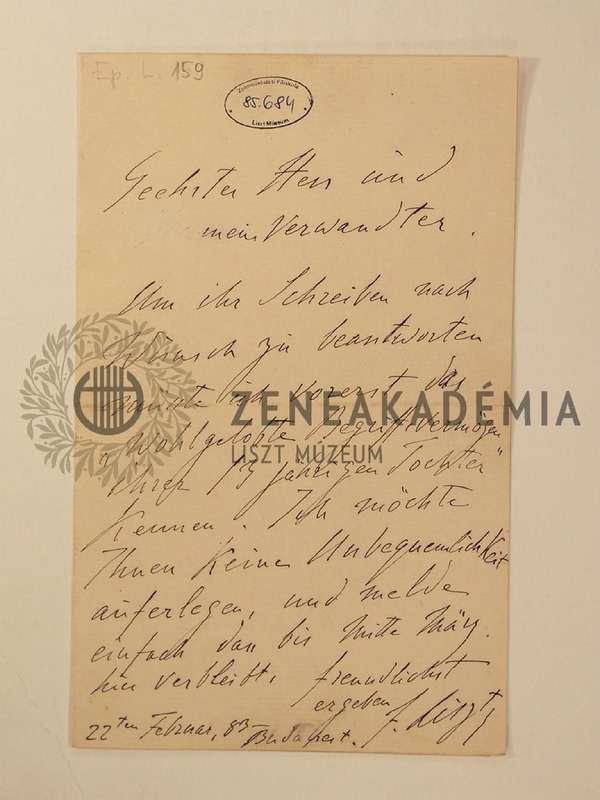 Ep. L. 159
Zeneművészeti Főiskola
85.684
Liszt Múzeum
Geehrter Herr und
mein Verwandter.
Um ihr Schreiben nach
Wunsch zu beantworten
müsste ich vorerst das
"wohlgelobte Begriffvermögen
ihrer 13 jährigen Tochter"
kennen. Ich möchte
Ihnen keine Unbequemlichkeit
auferlegen, und melde
einfach dass bis Mitte März
hier verbleibt,
freundlichst
ergeben
F. Liszt
22ten Februar, 83 Budapest.
ZENEAKADÉMIA
LISZT MÚZEUM